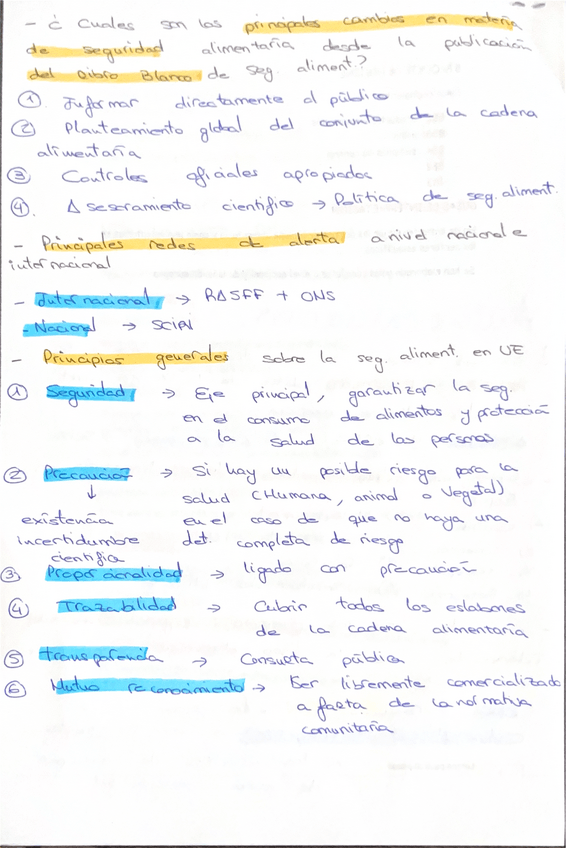 - ¿ Cuales son los principales cambios en materia
de seguridad alimentaria desde la publicación
del Libro Blanco de seg. aliment?
① Informar directamente al público
② Planteamiento global del conjunto de la cadena
alimentaria
③ Controles oficiales apropiados
④. Asesoramiento científico → Política de seg. aliment.
- Principales redes de alerta a nivel nacional e
internacional
- Internacional → RASFF + OMS
- Nacional → SCIRI
- Principios generales sobre la seg. aliment. en UE
① Seguridad → Eje principal, garantizar la seg.
en el consumo de alimentos y protección
a la salud de las personas
② Precaución → Si hay un posible riesgo para la
↓ salud (Humana, animal o Vegetal)
existencia en el caso de que no haya una
incertidumbre det. completa de riesgo
científica
③ Proporcionalidad → ligado con precaución
④ Trazabilidad → Cubrir todos los eslabones
de la cadena alimentaria
⑤ transparencia → Consulta pública
⑥ Mutuo reconocimiento → Ser libremente comercializado
a falta de la normativa
comunitaria